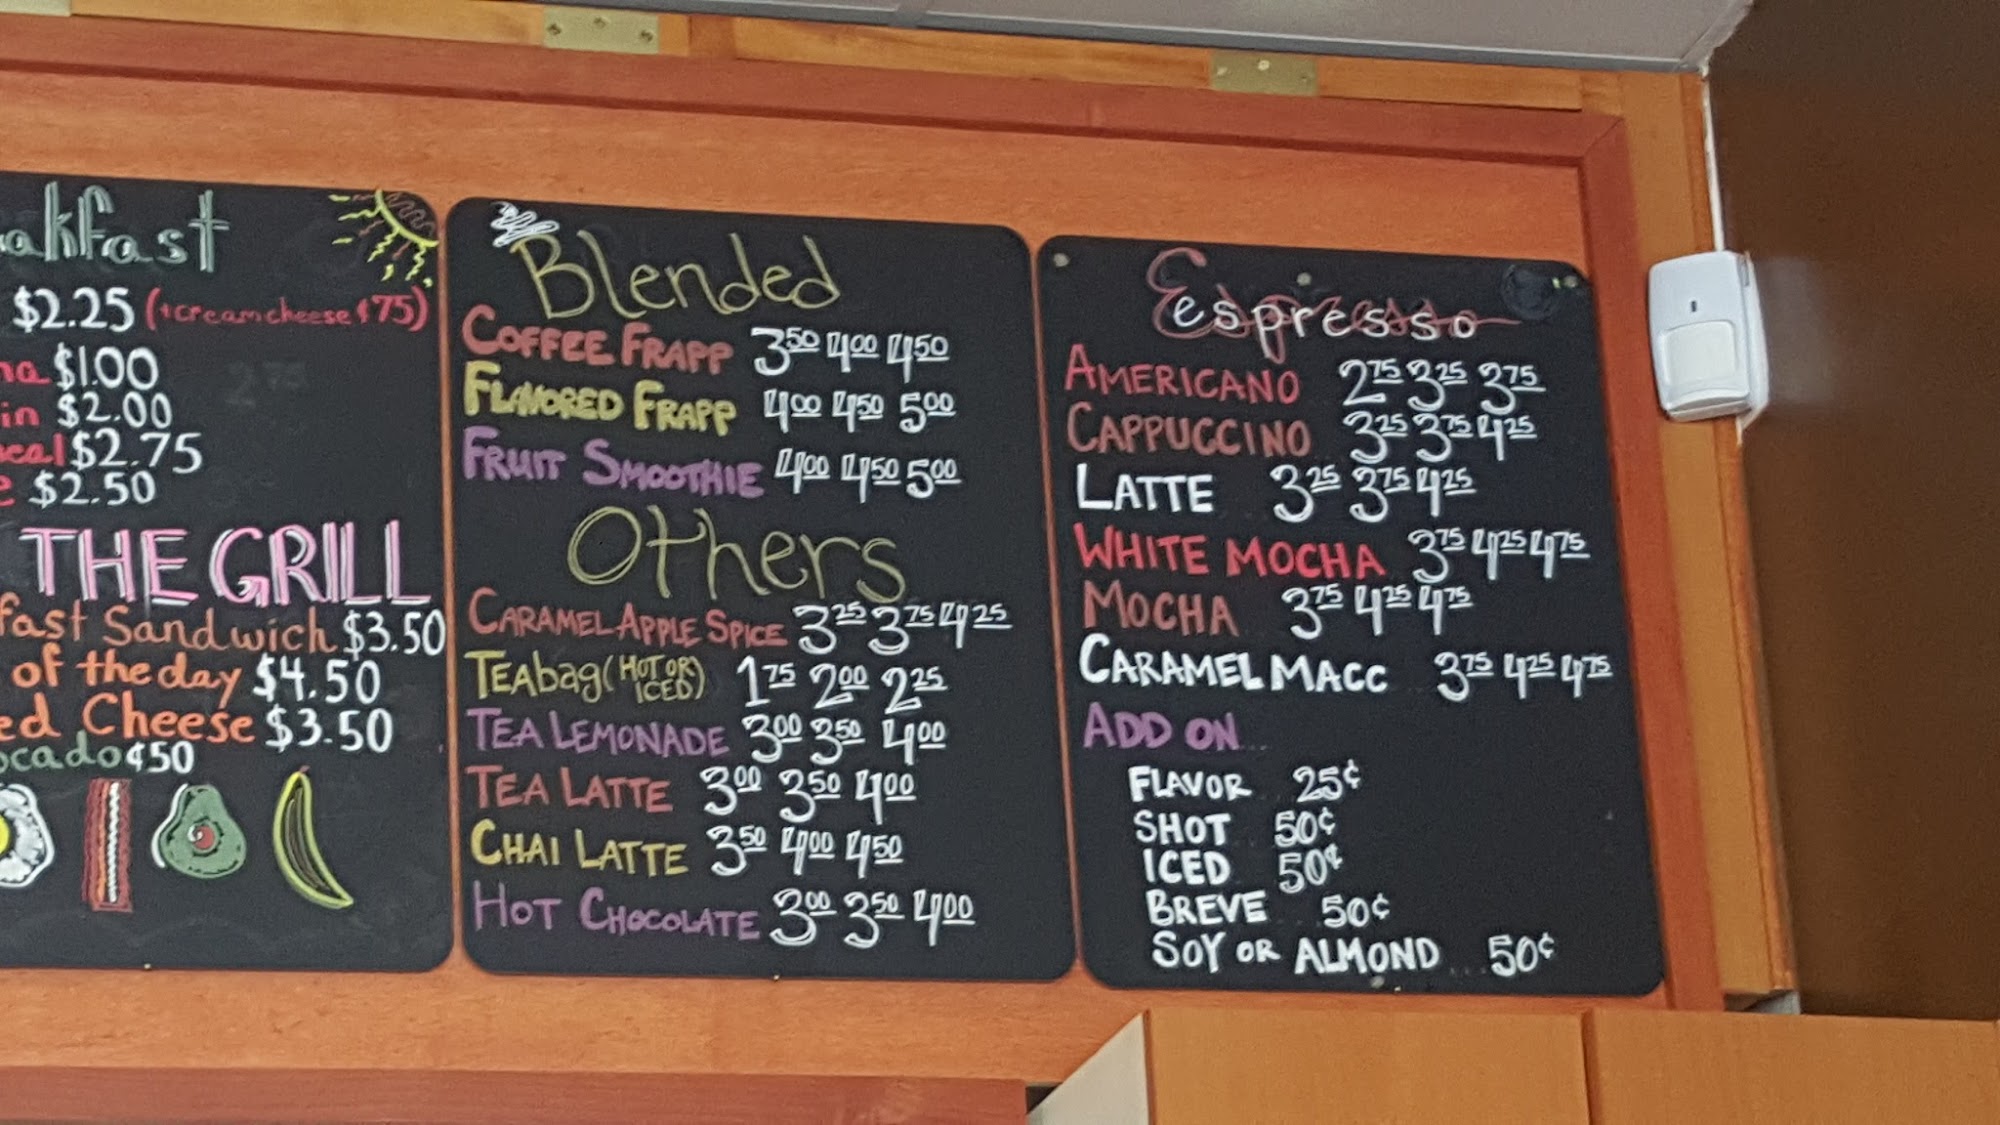 akfast
$2.25 (+creamcheese $.75)
na $1.00
in $2.00
eal $2.75
e $2.50
THE GRILL
fast Sandwich $3.50
of the day $4.50
ed Cheese $3.50
ocado ¢50
Blended
COFFEE FRAPP 3.50 4.00 4.50
FLAVORED FRAPP 4.00 4.50 5.00
FRUIT SMOOTHIE 4.00 4.50 5.00
Others
CARAMEL APPLE SPICE 3.25 3.75 4.25
TEAbag (HOT OR ICED) 1.75 2.00 2.25
TEA LEMONADE 3.00 3.50 4.00
TEA LATTE 3.00 3.50 4.00
CHAI LATTE 3.50 4.00 4.50
HOT CHOCOLATE 3.00 3.50 4.00
espresso
AMERICANO 2.75 3.25 3.75
CAPPUCCINO 3.25 3.75 4.25
LATTE 3.25 3.75 4.25
WHITE MOCHA 3.75 4.25 4.75
MOCHA 3.75 4.25 4.75
CARAMEL MACC 3.75 4.25 4.75
ADD ON
FLAVOR 25¢
SHOT 50¢
ICED 50¢
BREVE 50¢
SOY OR ALMOND 50¢